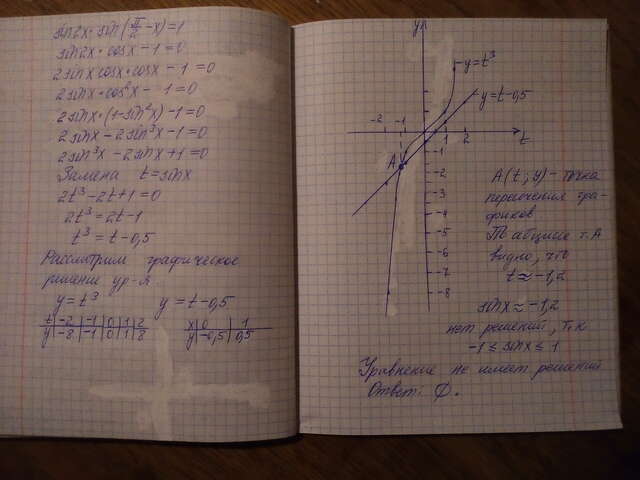 sin2x·sin(π/2-x)=1
sin2x·cosx-1=0
2sinx cosx·cosx-1=0
2sinx·cos²x-1=0
2sinx·(1-sin²x)-1=0
2sinx-2sin³x-1=0
2sin³x-2sinx+1=0
Замена t=sinx
2t³-2t+1=0
2t³=2t-1
t³=t-0,5
Рассмотрим графическое
решение ур-я.
y=t³ y=t-0,5
t -2 -1 0 1 2
y -8 -1 0 1 8
x 0 1
y -0,5 0,5
y
y=t³
y=t-0,5
-2 -1 1 2 t
A
-2
-3
-4
-5
-6
-7
-8
A(t;y)-точка
пересечения гра-
фиков
По абцисе т.А
видно, что
t≈-1,2
sinx≈-1,2
нет решений, т.к
-1≤sinx≤1
Уравнение не имеет решений
Ответ: ∅.